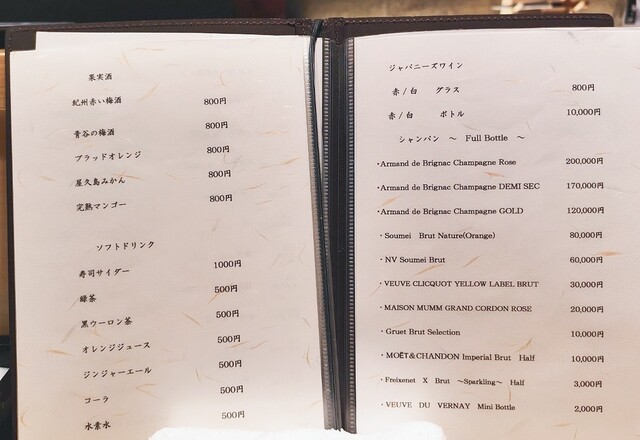 果実酒
紀州赤い梅酒 800円
青谷の梅酒 800円
ブラッドオレンジ 800円
屋久島みかん 800円
完熟マンゴー 800円
ソフトドリンク
寿司サイダー 1000円
緑茶 500円
黒ウーロン茶 500円
オレンジジュース 500円
ジンジャーエール 500円
コーラ 500円
水素水 500円
ジャパニーズワイン
赤/白 グラス 800円
赤/白 ボトル 10,000円
シャンパン ～ Full Bottle ～
・Armand de Brignac Champagne Rose 200,000円
・Armand de Brignac Champagne DEMI SEC 170,000円
・Armand de Brignac Champagne GOLD 120,000円
・Soumei Brut Nature(Orange) 80,000円
・NV Soumei Brut 60,000円
・VEUVE CLICQUOT YELLOW LABEL BRUT 30,000円
・MAISON MUMM GRAND CORDON ROSE 20,000円
・Gruet Brut Selection 10,000円
・MOËT&CHANDON Imperial Brut Half 10,000円
・Freixenet X Brut ～Sparkling～ Half 3,000円
・VEUVE DU VERNAY Mini Bottle 2,000円